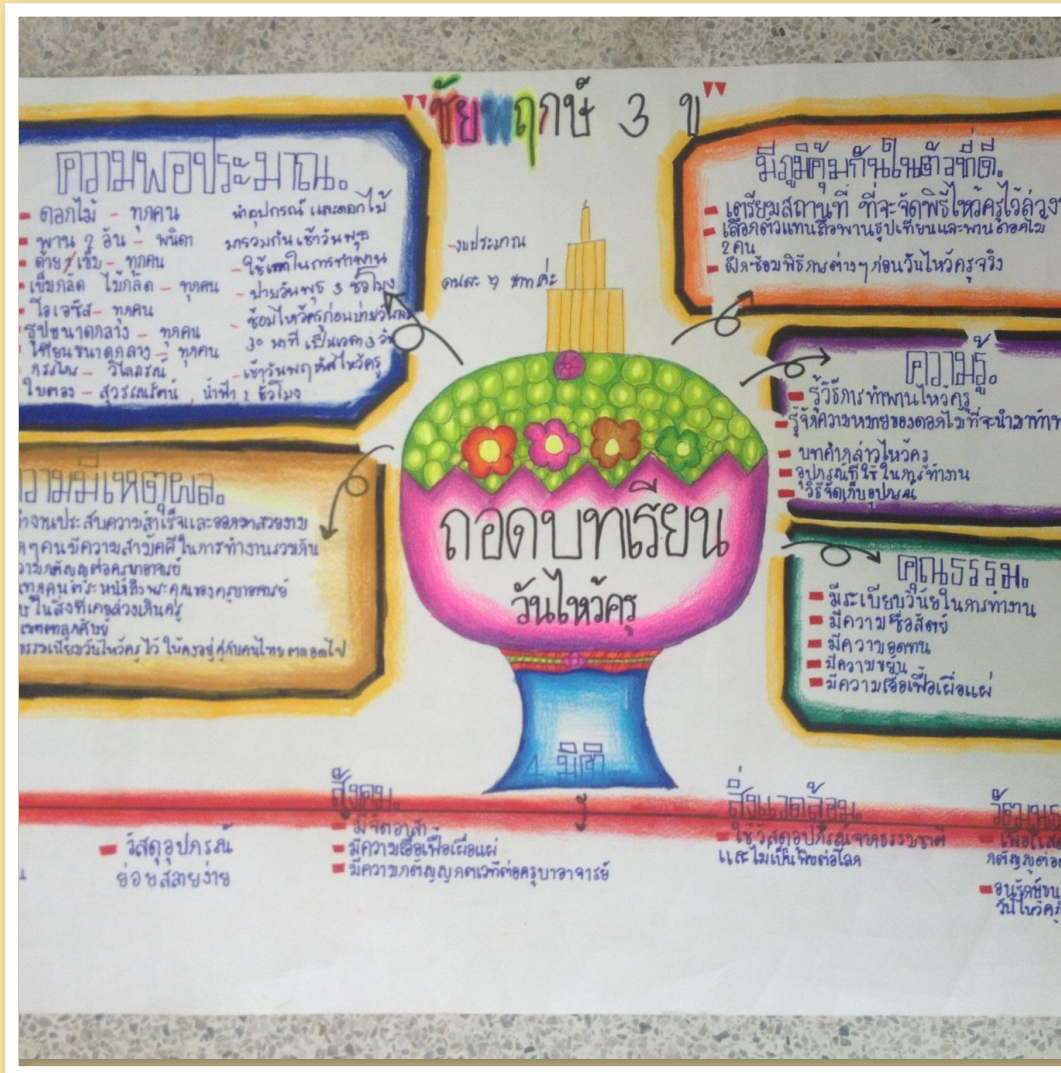 "ชัยพฤกษ์ 3 ข"
ความพอประมาณ.
- ดอกไม้ - ทุกคน
- พาน 2 อัน - พนิดา
- ด้าย / เข็ม - ทุกคน
- เข็มกลัด ไม้กลัด - ทุกคน
- โอเอซิส - ทุกคน
ธูปขนาดกลาง - ทุกคน
เทียนขนาดกลาง - ทุกคน
- วิไลภรณ์
ใบตอง - สุวรรณรัตน์ , น้ำฟ้า
นำอุปกรณ์ และดอกไม้
มารวมกันเช้าวันพุธ
- ใช้เวลาในการทำพาน
- บ่ายวันพุธ 3 ชั่วโมง
- ซ้อมไหว้ครูก่อนบ่ายวัน
30 นาที เป็นเวลา 3 วัน
- เช้าวันพฤหัสไหว้ครู
1 ชั่วโมง
- งบประมาณ
คนละ บาทค่ะ
มีภูมิคุ้มกันในตัวที่ดี.
- เตรียมสถานที่ ที่จะจัดพิธีไหว้ครูไว้ล่วง
- เลือกตัวแทนถือพานธูปเทียนและพานดอกไม้
2 คน
- ฝึกซ้อมพิธีการต่างๆก่อนวันไหว้ครูจริง
ความรู้.
- รู้วิธีการทำพานไหว้ครู
- รู้จักความหมายของดอกไม้ที่จะนำมาทำ
- บทคำกล่าวไหว้ครู
- อุปกรณ์ที่ใช้ในการทำงาน
- วิธีจัดเก็บอุปกรณ์
วามมีเหตุผล.
ทำงานประสบความสำเร็จและออกมาสวยงาม
ๆคนมีความสามัคคีในการทำงานร่วมกัน
วามกตัญญูต่อครูบาอาจารย์
ทุกคนตระหนักถึงพระคุณของครูบาอาจารย์
ในสิ่งที่เคยล่วงเกินครู
ธรรมเนียมวันไหว้ครูไว้ ให้คงอยู่คู่กับคนไทยตลอดไป
ถอดบทเรียน
วันไหว้ครู
คุณธรรม.
- มีระเบียบวินัยในการทำงาน
- มีความซื่อสัตย์
- มีความอดทน
- มีความขยัน
- มีความเอื้อเฟื้อเผื่อแผ่
4 มิติ
- วัสดุอุปกรณ์
ย่อยสลายง่าย
สังคม.
- มีจิตอาสา
- มีความเอื้อเฟื้อเผื่อแผ่
- มีความกตัญญูกตเวทีต่อครูบาอาจารย์
สิ่งแวดล้อม.
- ใช้วัสดุอุปกรณ์จากธรรมชาติ
และไม่เป็นพิษต่อโลก
วัฒนธ
- เพื่อแสด
กตัญญูต่อ
- อนุรักษ์ขน
วันไหว้ครู